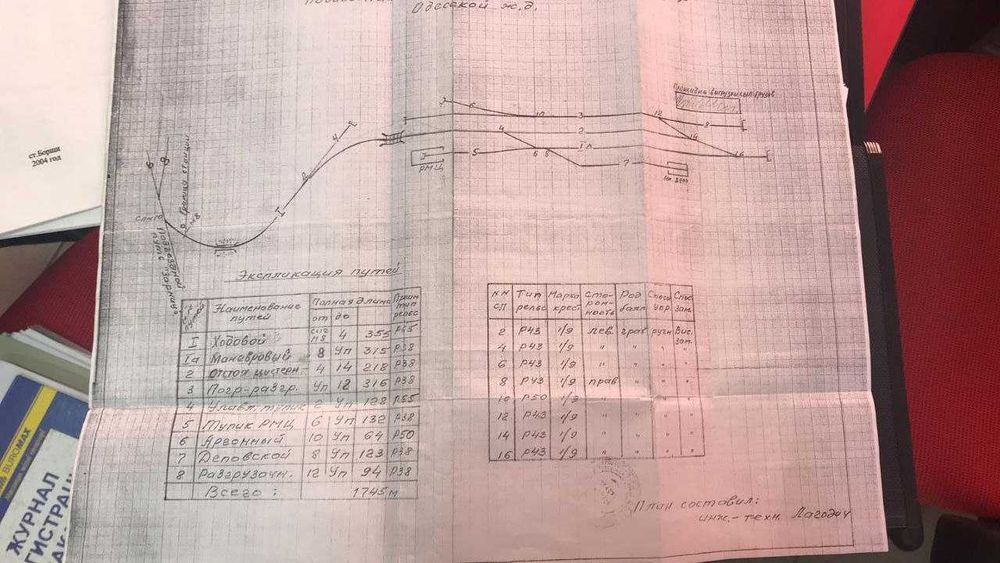 Одесской ж.д.
ст.Борщи
2004 год
Площадка выгрузки грузов
РМЦ
Граница станции
Подъездной
Экспликация путей
Наименование путей Полная длина
от до
I Ходовой сиг М8 4 355 Р65
Iа Маневровый 8 Уп 315 Р38
2 Отстоя цистерн. 4 14 218 Р38
3 Погр-разгр. Уп 12 316 Р38
4 Улавл. тупик 2 Уп 128 Р65
5 Тупик РМЦ 6 Уп 132 Р38
6 Аргонный 10 Уп 64 Р50
7 Деповской 8 Уп 123 Р38
8 Разгрузочн. 12 Уп 94 Р38
Всего: 1745 м
NN СП Тип рельс Марка крест. Сторонность Род балл. Спос. упр. Спос. зам.
2 Р43 1/9 лев. грав. ручн. Вис. зам.
4 Р43 1/9 " " " "
6 Р43 1/9 " " " "
8 Р43 1/9 прав " " "
10 Р50 1/9 " " " "
12 Р43 1/9 " " " "
14 Р43 1/9 " " " "
16 Р43 1/9 " " " "
План составил:
инж.-техн. Лагодич
BUROMAX
ЖУРНАЛ
ГИСТРАЦ